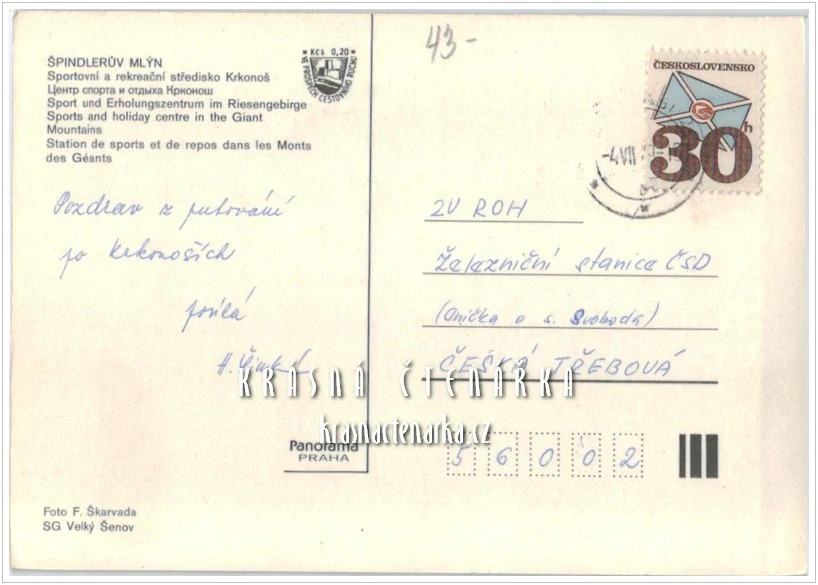 43-
ŠPINDLERŮV MLÝN
Sportovní a rekreační středisko Krkonoš
Центр спорта и отдыха Крконош
Sport und Erholungszentrum im Riesengebirge
Sports and holiday centre in the Giant
Mountains
Station de sports et de repos dans les Monts
des Géants
Kčs 0,20
VE PROSPĚCH CESTOVNÍHO RUCHU
ČESKOSLOVENSKO
30h
-4.VII
Pozdrav z putování
po Krkonoších
posílá
H.
ZV ROH
Železniční stanice ČSD
(Anička a s. Svoboda)
ČESKÁ TŘEBOVÁ
KRÁSNÁ ČTENÁŘKA
krasnactenarka.cz
56002
Panorama
PRAHA
Foto F. Škarvada
SG Velký Šenov